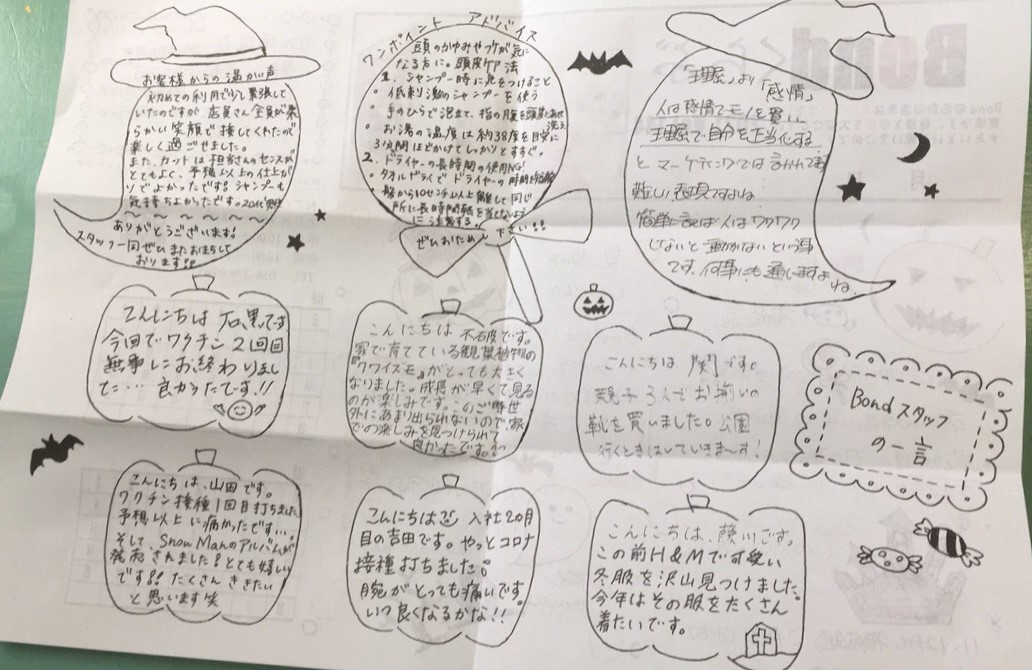 お客様からの温かい声
初めての利用で少し緊張して
いたのですが、店員さん全員が柔
らかい笑顔で接してくれたので
楽しく過ごせました。
また、カットは担当さんのセンスが
とてもよく、予想以上の仕上が
りでよかったです!シャンプーも
気持ちよかったです。20代男性
ありがとうございます!
スタッフ一同ぜひまたお待ちして
おります!!
ワンポイント アドバイス
頭のかゆみやフケが気に
なる方に。頭皮ケア法
1. シャンプー時に気をつけること
・低刺激のシャンプーを使う
・手のひらで泡立て、指の腹を頭皮にあて洗う
・お湯の温度は約38度を目安に
3分間ほどかけてしっかりとすすぐ。
2. ドライヤーの長時間の使用NG!
・タオルドライでドライヤーの時間を短縮
・髪から10センチ以上離して同じ
所に長時間熱を当てないよう
に注意する!
ぜひおためし
下さい!!
「理屈」より「感情」
人は感情でモノを買い
理屈で自分を正当化する
と マーケティングでは言われてます
難しい表現ですよね
簡単に言えば人はワクワク
しないと動かないという事
です。何事にも通じますよね
こんにちは 石黒です
今回でワクチン2回目
無事にお終わりまし
た… 良かったです!!
こんにちは 不破です。
家で育てている観葉植物の
『クワイズモ』がとっても大きく
なりました。成長が早くて見る
のが楽しみです。このご時世
外にあまり出られないので、家
での楽しみを見つけられて
良かったです。
こんにちは 関です。
親子3人でお揃いの
靴を買いました。公園
行くときはいていきまーす!
Bondスタッフ
の一言
こんにちは、山田です。
ワクチン接種1回目打ちました。
予想以上に痛かったです…
そして、Snow Manのアルバムが
発売されました!とても嬉しい
です!! たくさん ききたい
と思います 笑
こんにちは 入社2カ月
目の吉田です。やっとコロナ
接種打ちました!
腕がとっても痛いです。
いつ良くなるかな!!
こんにちは、藤川です。
この前H&Mで可愛い
冬服を沢山見つけました。
今年はその服をたくさん
着たいです。